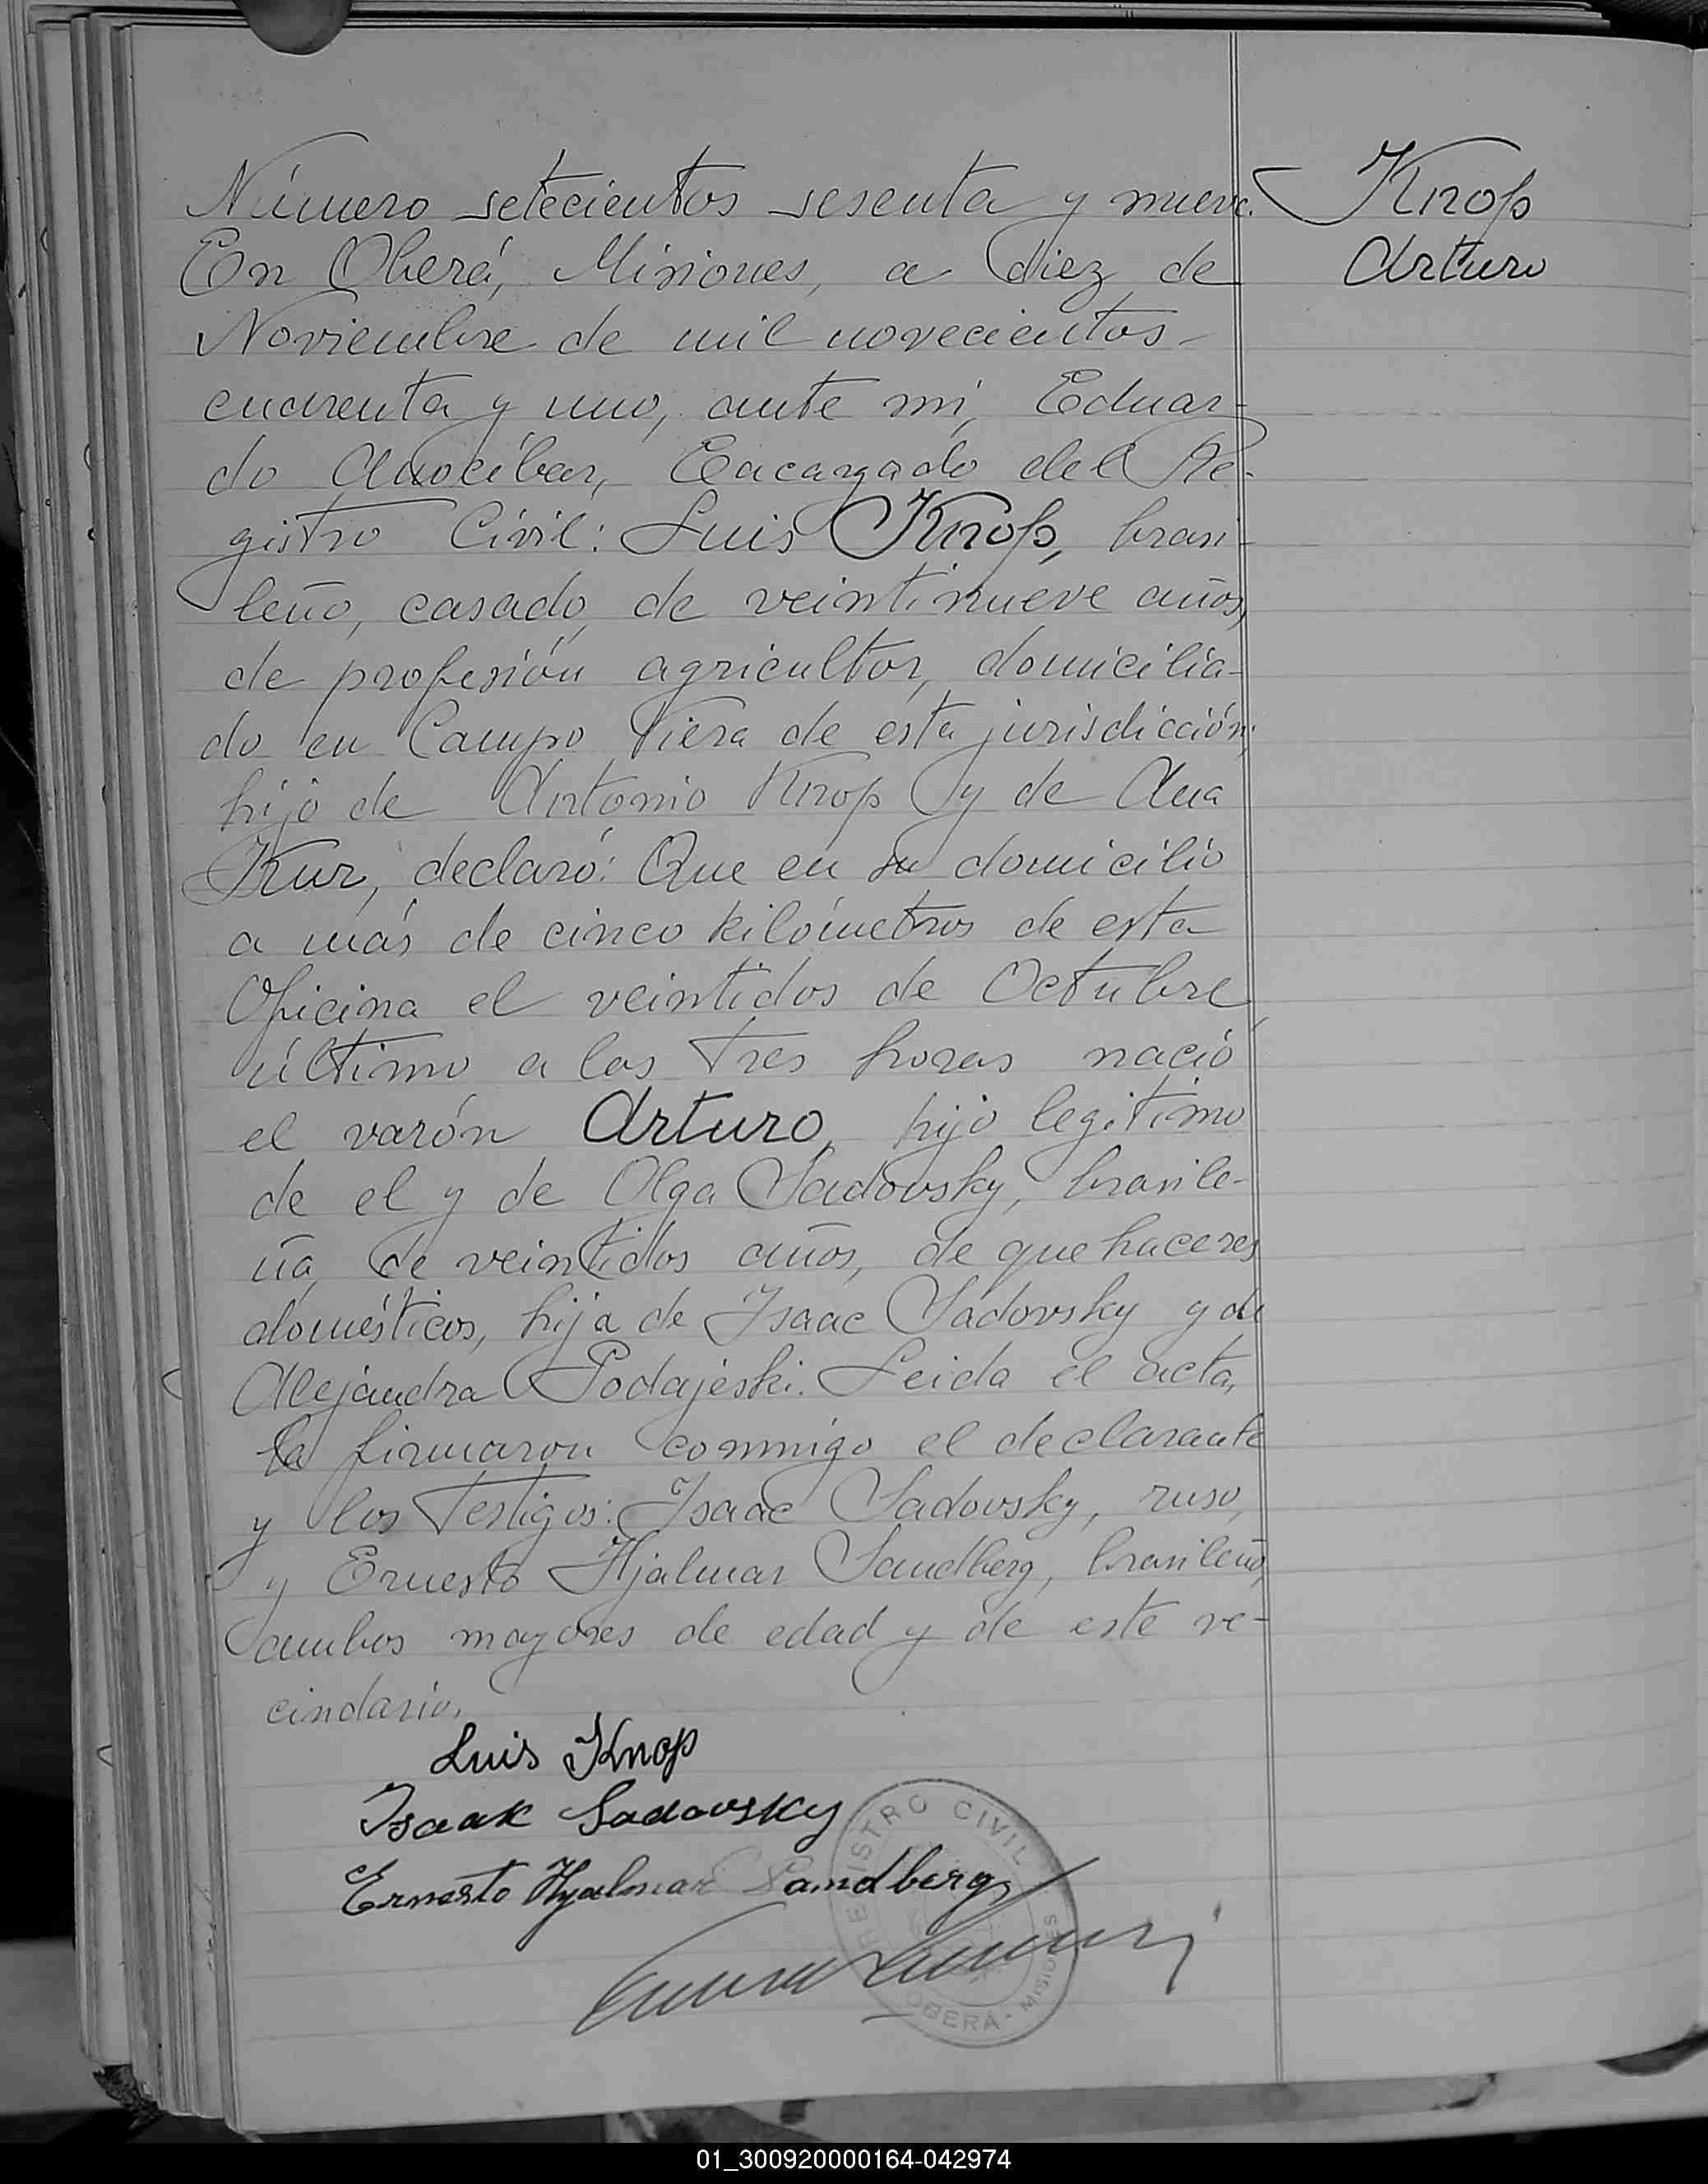 Número setecientos sesenta y nueve.
Knop
En Oberá, Misiones, a diez de
Arturo
Noviembre de mil novecientos
cuarenta y uno, ante mí, Eduar-
do Anocíbar, Encargado del Re-
gistro Civil: Luis Knop, brasi-
leño, casado, de veintinueve años,
de profesión agricultor, domicilia-
do en Campo Viera de esta jurisdicción,
hijo de Antonio Knop y de Ana
Kur, declaró: Que en su domicilio
a más de cinco kilómetros de esta
Oficina el veintidos de Octubre
último a las tres horas nació
el varón Arturo, hijo legitimo
de el y de Olga Sadovsky, brasile-
ña, de veintidos años, de que haceres
domésticos, hija de Isaac Sadovsky y de
Alejandra Podajeski. Leida el acta,
la firmaron conmigo el declarante
y los testigos: Isaac Sadovsky, ruso,
y Ernesto Hjalmar Sandberg, brasileño,
ambos mayores de edad y de este ve-
cindario.
Luis Knop
Isaak Sadovsky
Ernesto Hjalmar Sandberg
REGISTRO CIVIL
OBERÁ - MISIONES
01_300920000164-042974